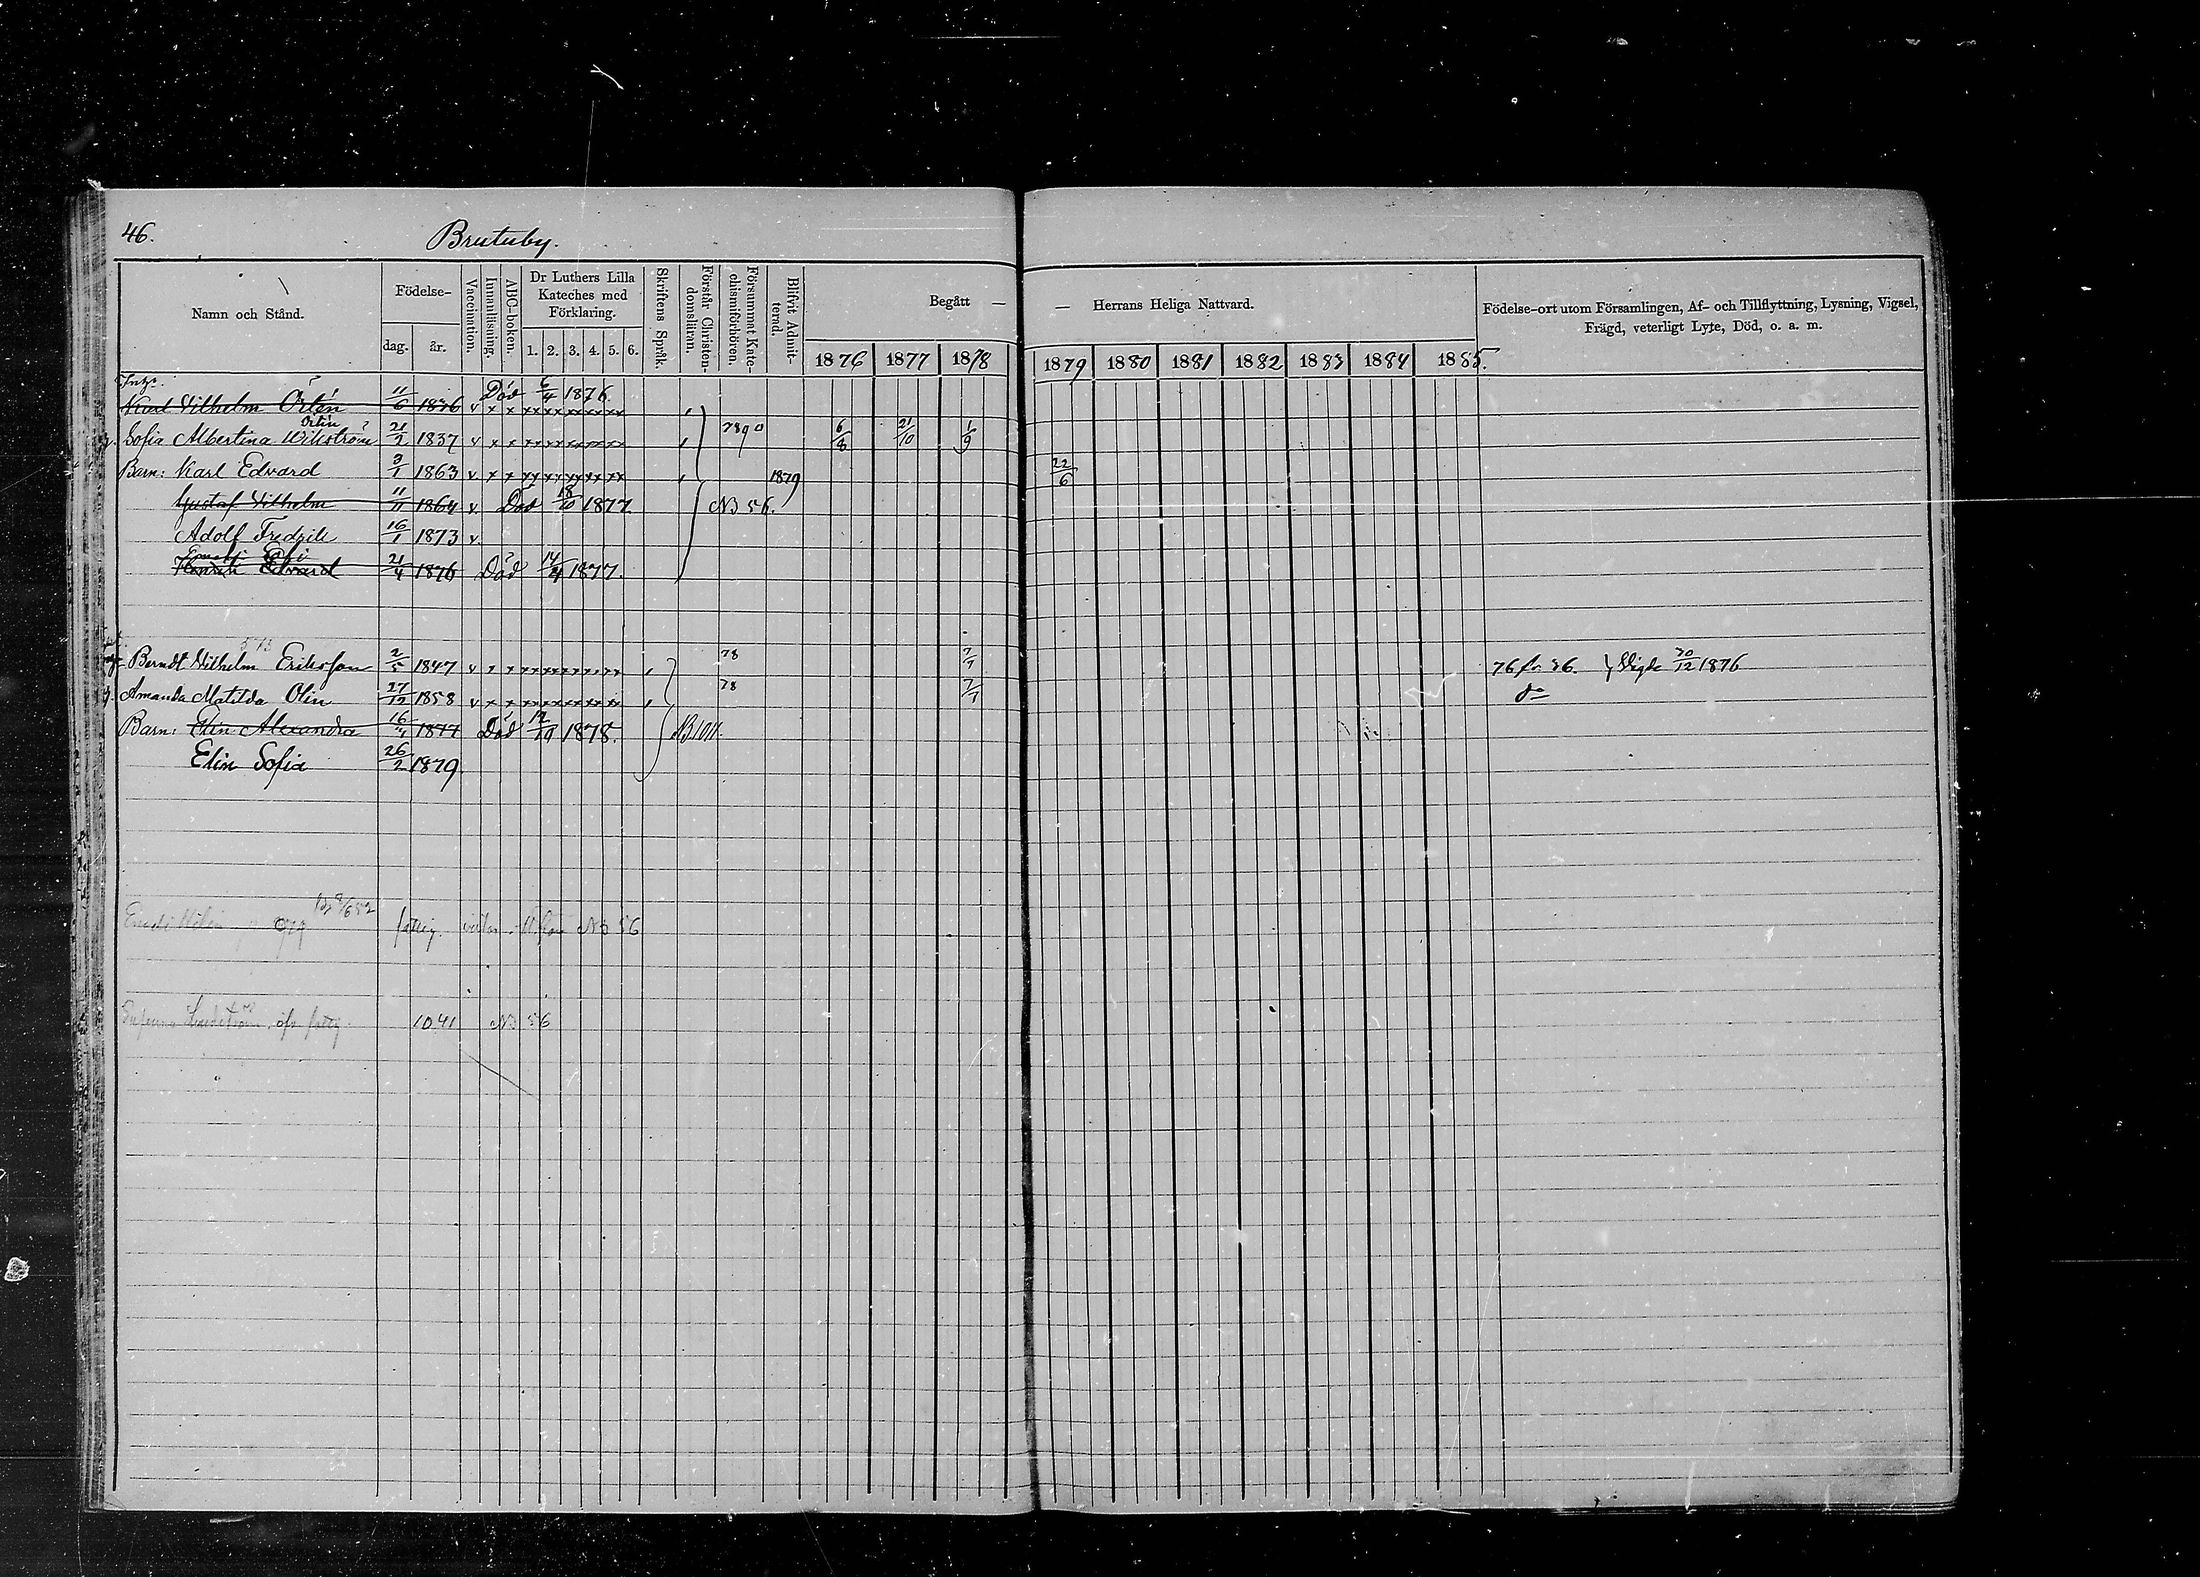 46.
Brutuby.
Namn och Stånd.
Födelse-
dag.
år.
Vaccination.
Innanläsning.
ABC-boken.
Dr Luthers Lilla
Kateches med
Förklaring.
1. 2. 3. 4. 5. 6.
Skriftens Språk.
Förstår Christen-
domsläran.
Försummat Kate-
chismiförhören.
Blifvit Admit-
terad.
Begått — — Herrans Heliga Nattvard.
1876 1877 1878 1879 1880 1881 1882 1883 1884 1885.
Födelse-ort utom Församlingen, Af- och Tillflyttning, Lysning, Vigsel,
Frägd, veterligt Lyte, Död, o. a. m.
Karl Vilhelm Örtén 11/6 1836 v Död 6/4 1876
Örtén
Sofia Albertina Wikström 21/2 1837 v x x 6/8 21/10 1/9
Barn: Karl Edvard 3/1 1863 v x x 1879 22/6
Gustaf Vilhelm 11/11 1864 v Död 18/10 1877. NB 56.
Adolf Fredrik 16/1 1873 v
Edvard 21/4 1876 Död 14/4 1877.
573
Berndt Vilhelm Eriksson 2/5 1847 v x x 78 7/7 76 fr 36. Vigde 30/12 1876
Amanda Matilda Olin 27/12 1858 v x x 78 7/7 do
Barn: Elin Alexandra 16/4 1877 Död 12/10 1878. NB 107.
Elin Sofia 26/2 1879
979 fattig. NB 56
fattig 1041 NB 56